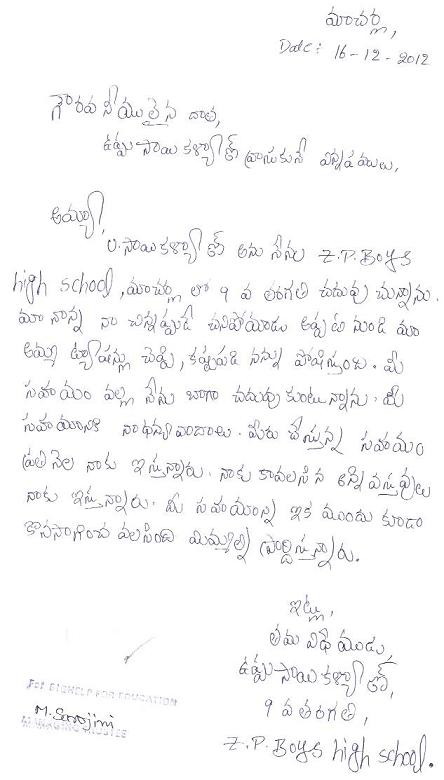 మాచర్ల,
Date: 16-12-2012
గౌరవనీయులైన దాత,
ఉప్పు సాయి కళ్యాణ్ వ్రాసుకునే విన్నపములు,
అమ్మా,
U. సాయి కళ్యాణ్ అను నేను Z.P. Boys
high school, మాచర్ల లో 9 వ తరగతి చదువు చున్నాను.
మా నాన్న నా చిన్నప్పుడే చనిపోయాడు అప్పటి నుండి మా
అమ్మ ట్యూషన్లు చెప్పి, కష్టపడి నన్ను పోషిస్తుంది. మీ
సహాయం వల్ల నేను బాగా చదువుకుంటున్నాను. మీ
సహాయానికి నా ధన్యవాదాలు. మీరు చేస్తున్న సహాయం
ప్రతి నెల నాకు ఇస్తున్నారు. నాకు కావలసిన అన్ని వస్తువులు
నాకు ఇస్తున్నారు. మీ సహాయాన్ని ఇక ముందు కూడా
కొనసాగించ వలసింది మిమ్మల్ని ప్రార్థిస్తున్నారు.
ఇట్లు,
తమ విధేయుడు,
ఉప్పు సాయి కళ్యాణ్,
9 వ తరగతి,
Z.P. Boys high school.
For BIGHELP FOR EDUCATION
M. Sarojini
MANAGING TRUSTEE